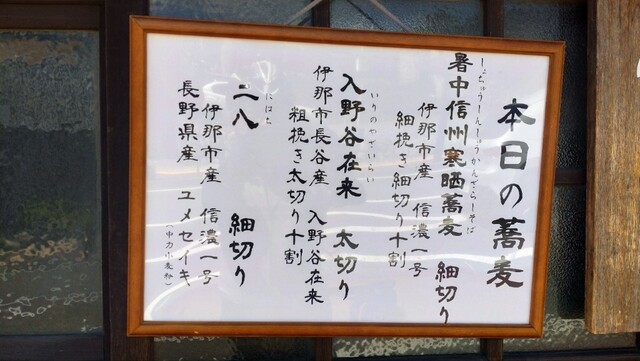 本日の蕎麦
しょちゅうしんしゅうかんざらしそば
暑中信州寒晒蕎麦 細切り
伊那市産 信濃一号
細挽き細切り十割
いりのやざいらい
入野谷在来 太切り
伊那市長谷産 入野谷在来
粗挽き太切り十割
にはち
二八 細切り
伊那市産 信濃一号
長野県産 ユメセイキ
(中力小麦粉)